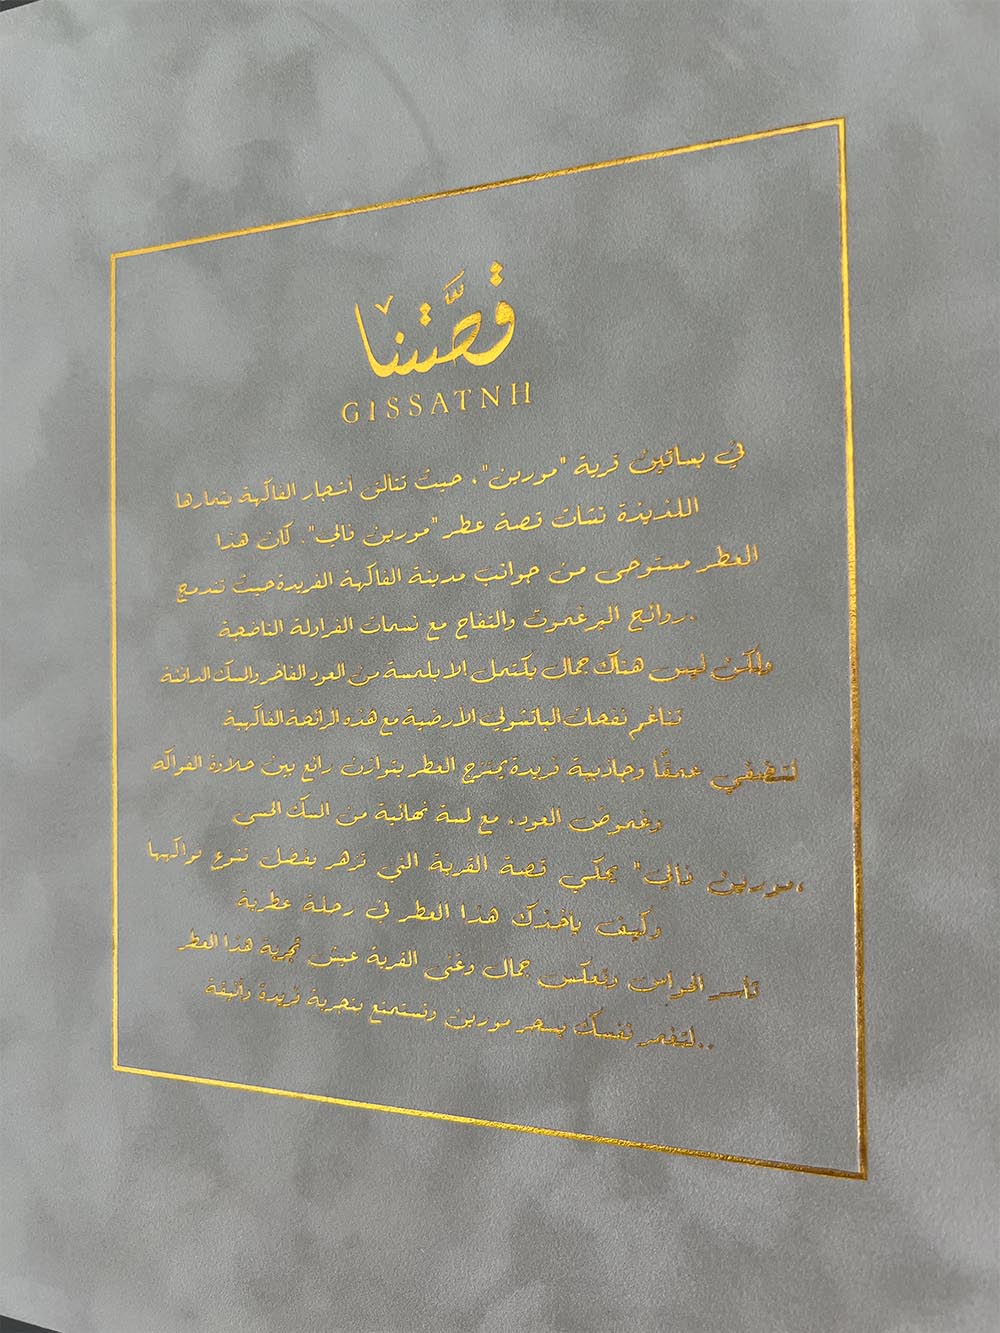 قصَّتنا
GISSATNH
في بساتين قرية "مورين"، حيث تتألق أشجار الفاكهة بثمارها
اللذيذة نشأت قصة عطر "مورين فالي". كان هذا
العطر مستوحى من جوانب مدينة الفاكهة الفريدة حيث تندمج
.روائح البرغموت والتفاح مع نسمات الفراولة الناضجة
ولكن ليس هناك جمال يكتمل إلا بلمسة من العود الفاخر والمسك الدافئة
تناغم نفحات الباتشولي الأرضية مع هذه الرائحة الفاكهية
لتضيفي عمقًا وجاذبية فريدة يمتزج العطر بتوازن رائع بين حلاوة الفواكه
وغموض العود، مع لمسة نهائية من المسك الحسي
،مورين فالي" يحكي قصة القرية التي تزهر بفضل تنوع فواكهها
وكيف يأخذك هذا العطر في رحلة عطرية
تأسر الحواس وتعكس جمال وغنى القرية عيش تجربة هذا العطر
..لتغمر نفسك بسحر مورين وتستمتع بتجربة فريدة وأنيقة